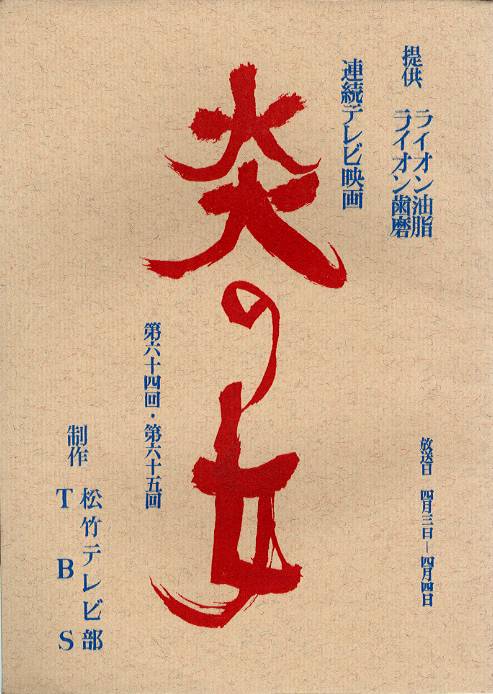 提供 ライオン油脂
ライオン歯磨
連続テレビ映画
炎の女
第六十四回・第六十五回
放送日 四月三日―四月四日
制作 松竹テレビ部
TBS